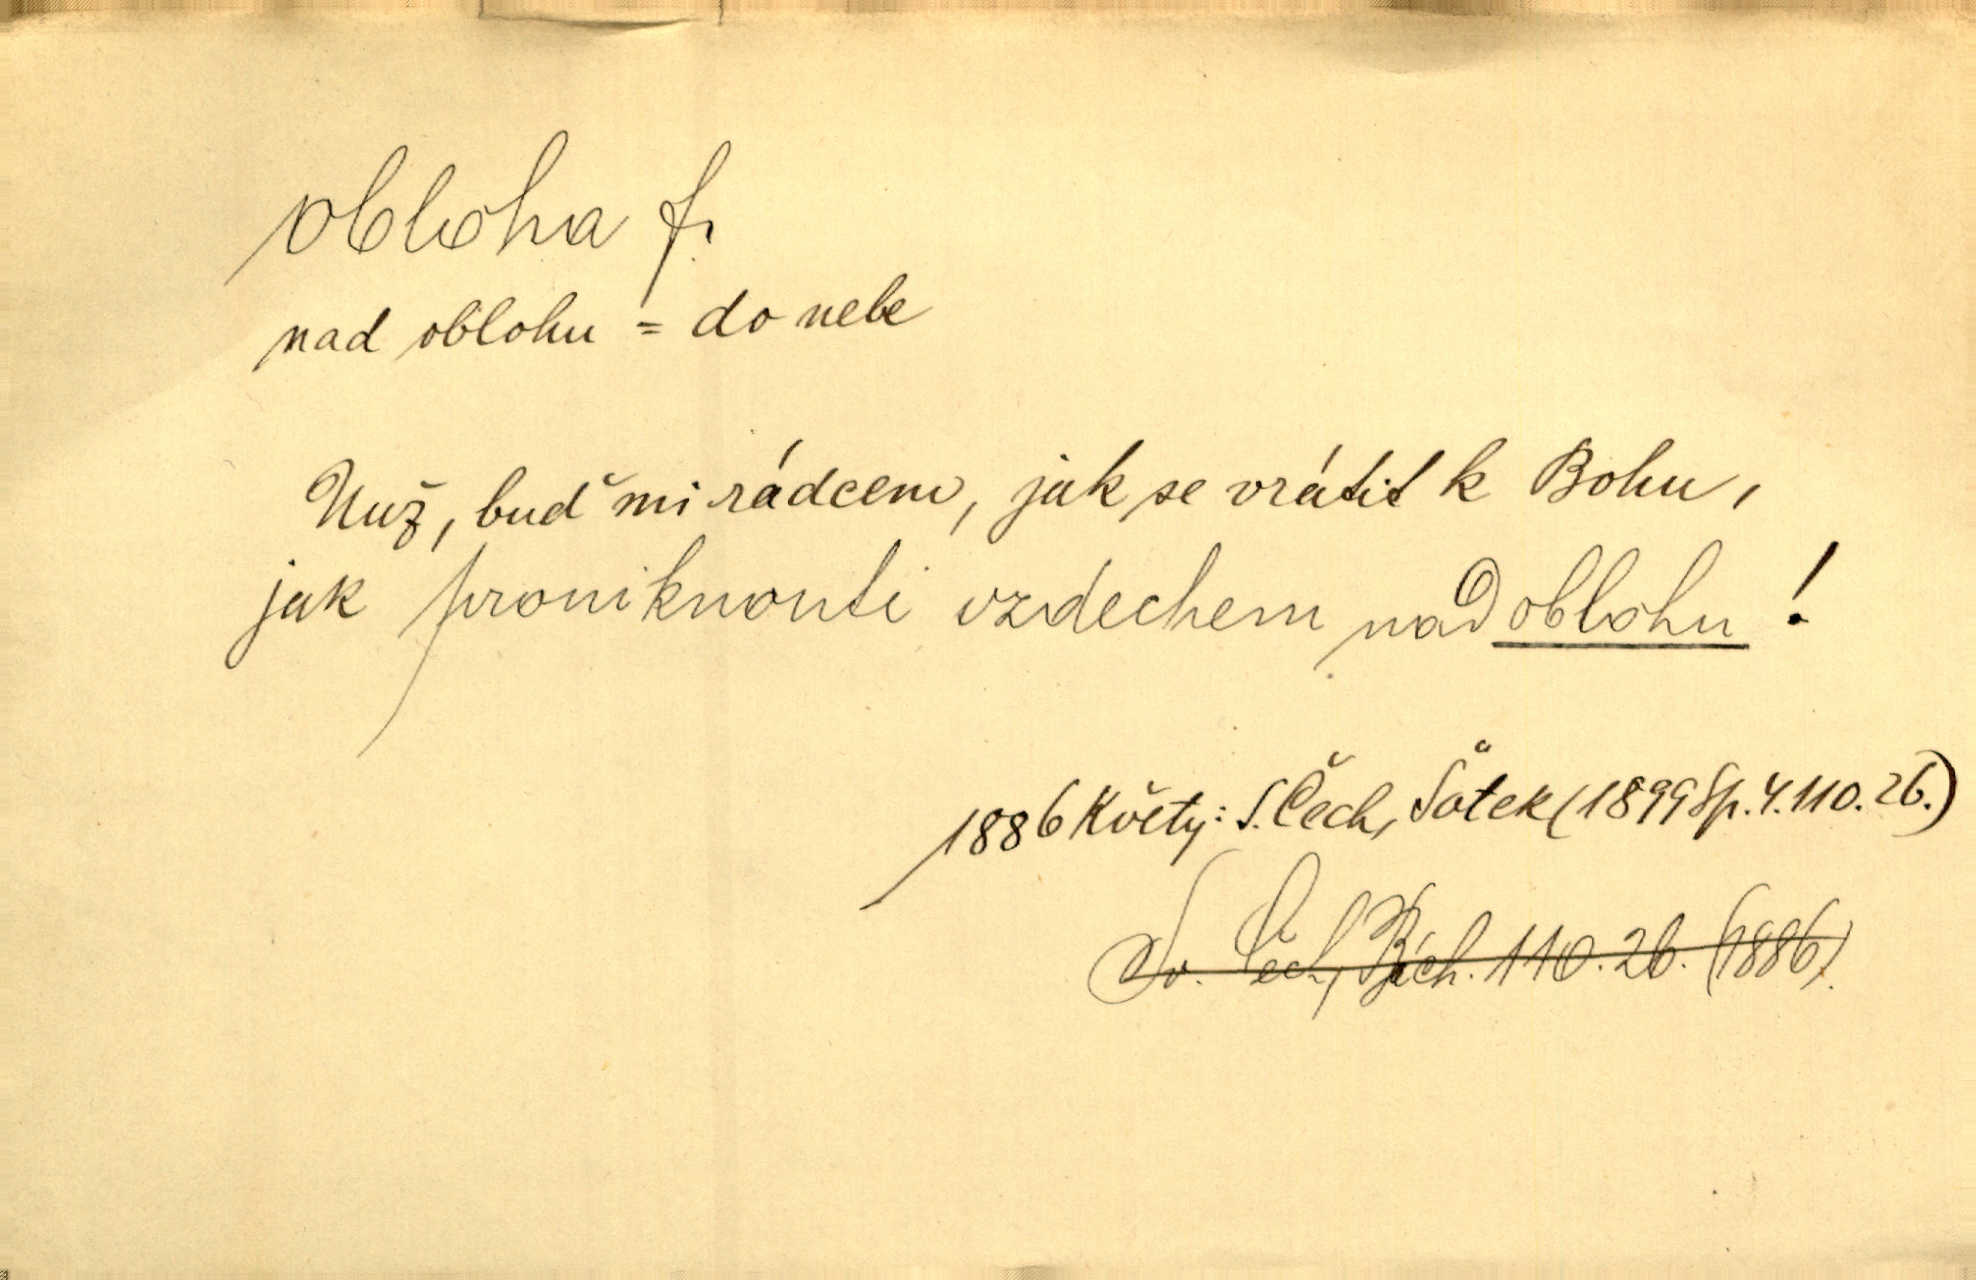 obloha f.
nad oblohu = do nebe
Nuž, buď mi rádcem, jak se vrátit k Bohu,
jak proniknouti vzdechem nad oblohu!
1886 Květy: S. Čech, Šotek (1899 Sp. 4. 110. 26.)
Sv. Čech, 110. 26. (1886).